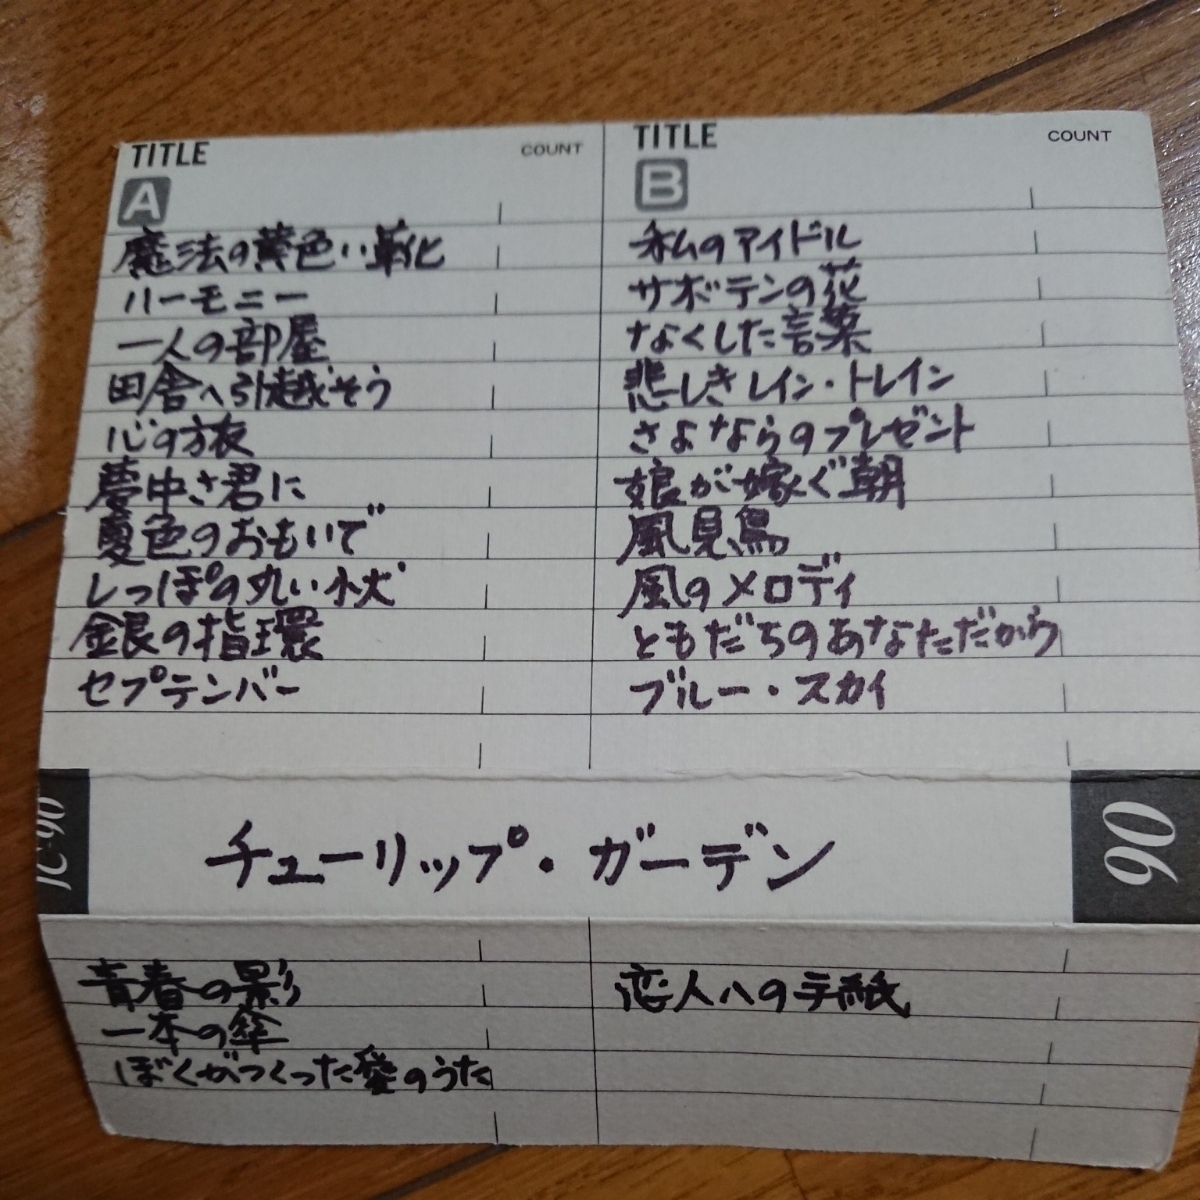 TITLE COUNT
A
魔法の黄色い靴
ハーモニー
一人の部屋
田舎へ引越そう
心の旅
夢中さ君に
夏色のおもいで
しっぽの丸い小犬
銀の指環
セプテンバー
TITLE COUNT
B
私のアイドル
サボテンの花
なくした言葉
悲しきレイン・トレイン
さよならのプレゼント
娘が嫁ぐ朝
風見鳥
風のメロディ
ともだちのあなただから
ブルー・スカイ
IC-90
チューリップ・ガーデン
90
青春の影
一本の傘
ぼくがつくった愛のうた
恋人への手紙